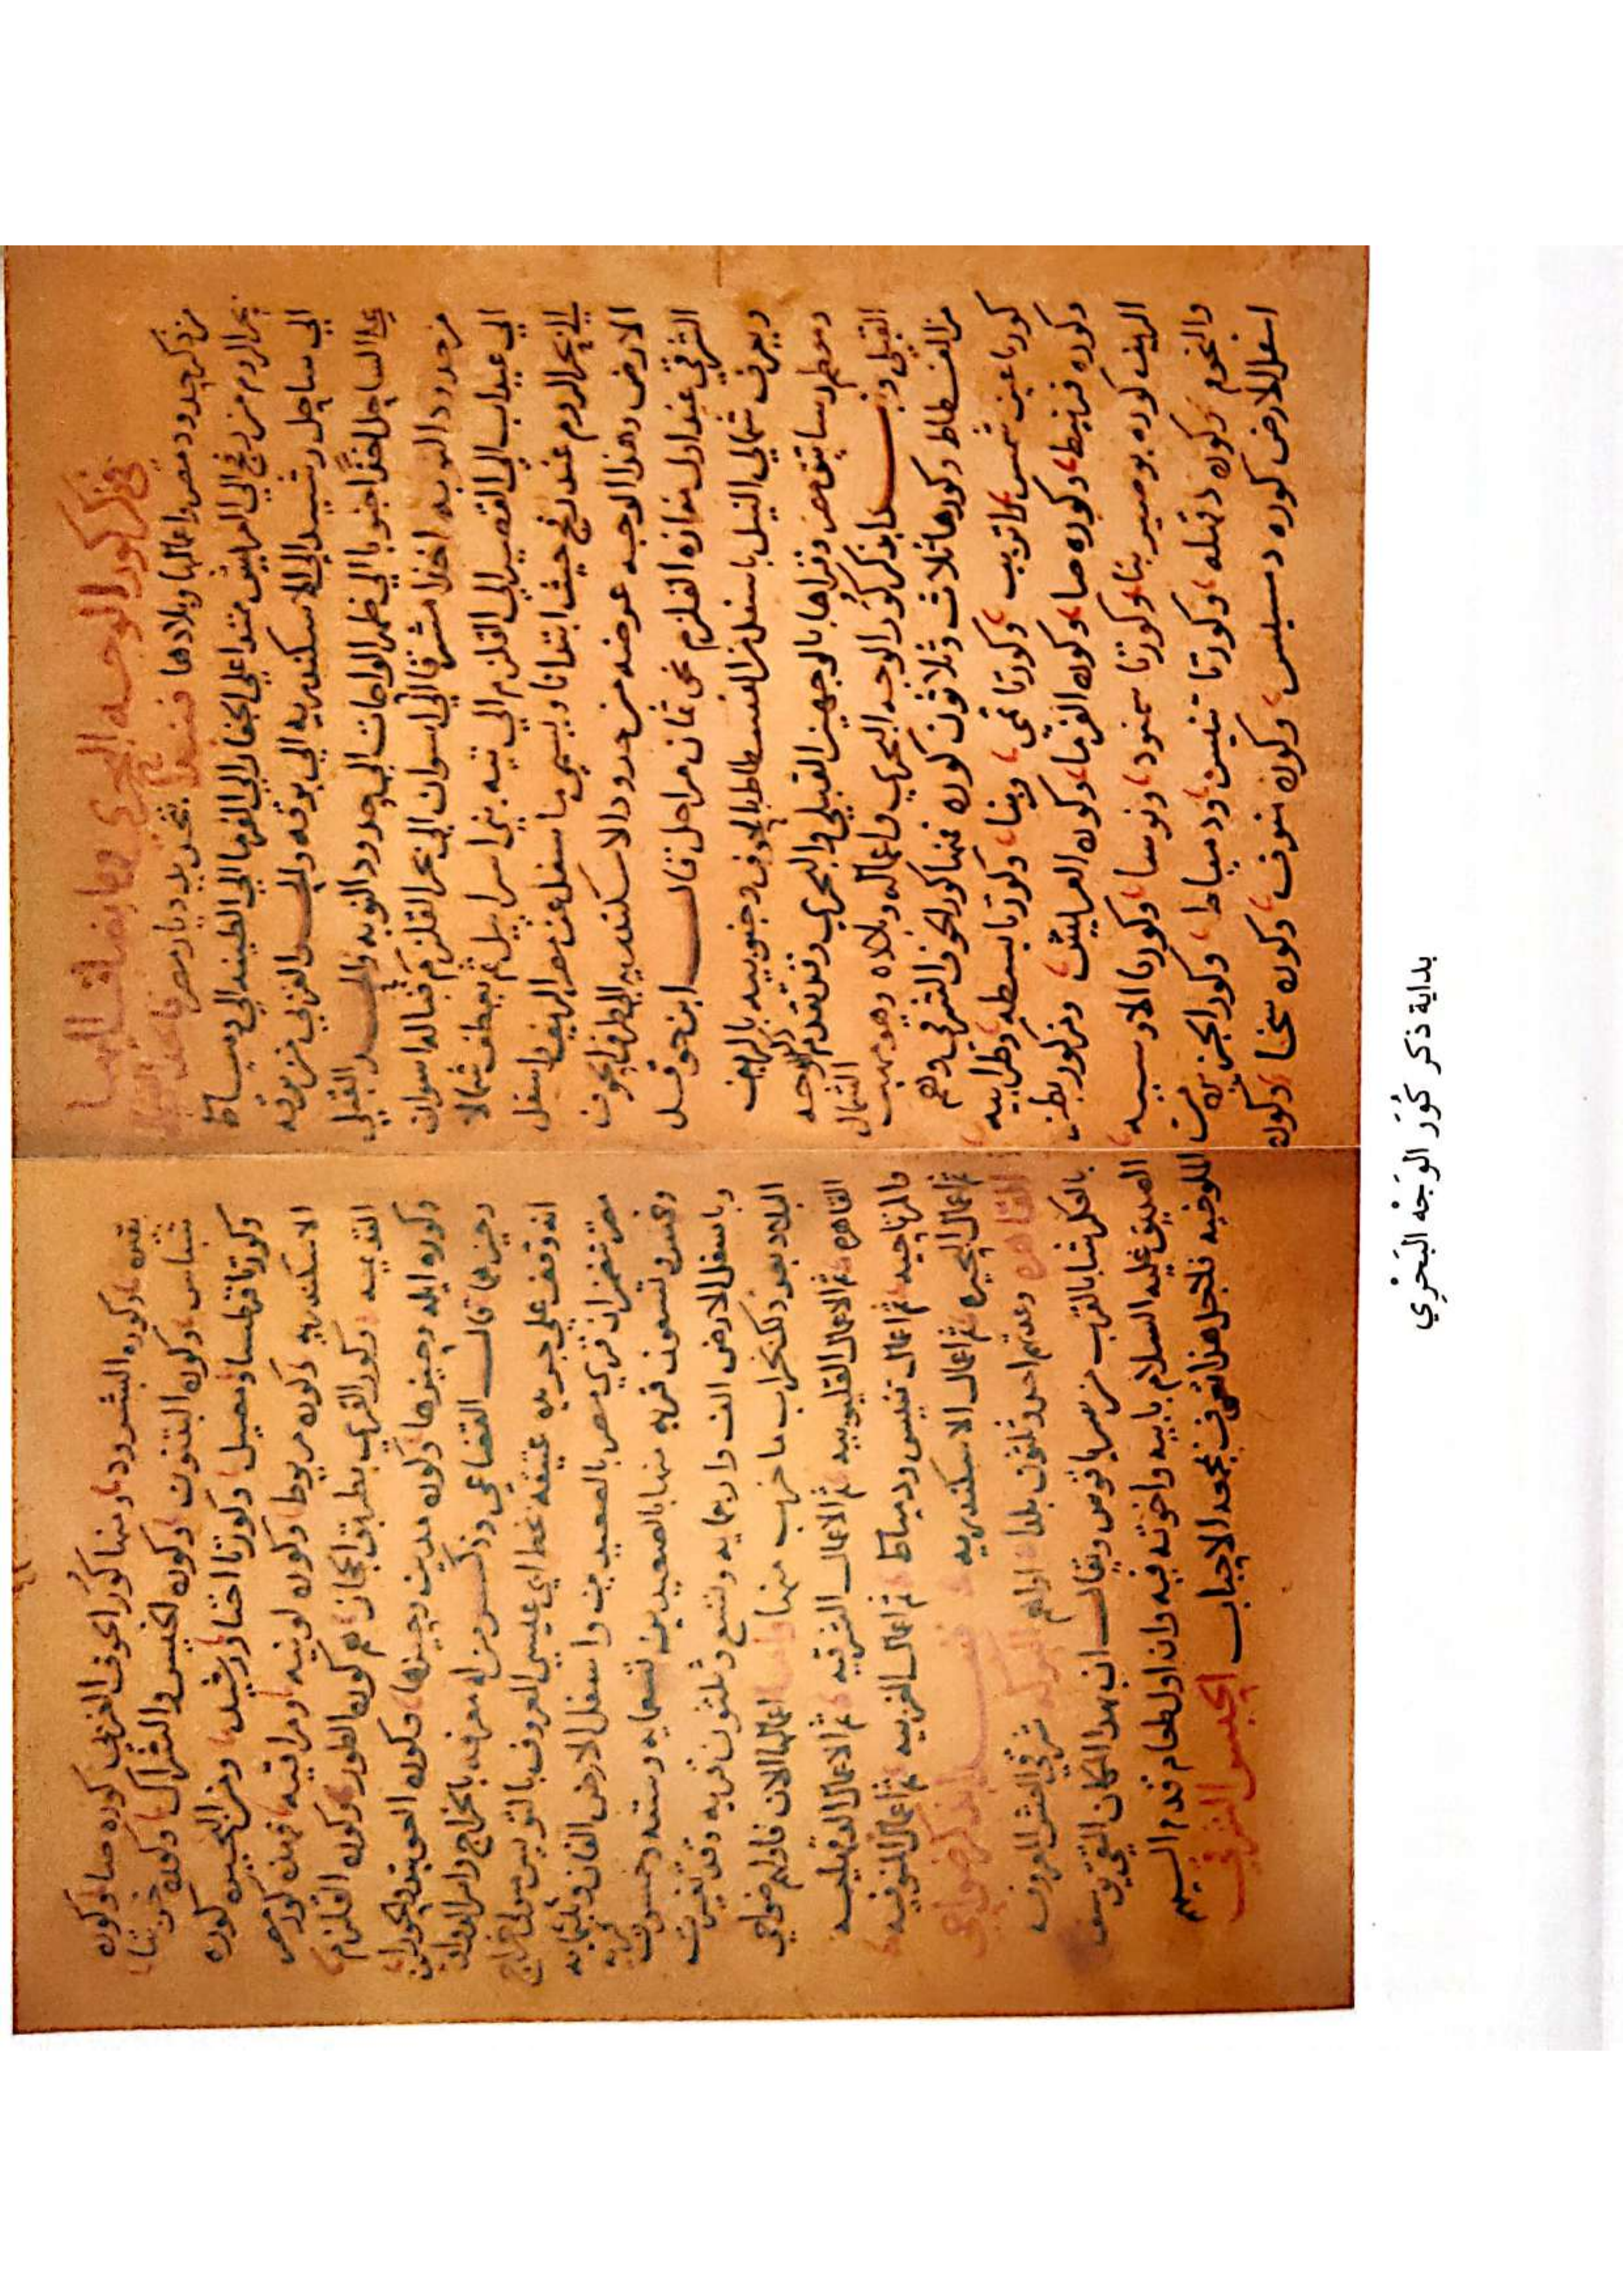 في ذكر كور الوجه البحري وما يضاف اليها
من ذكر حدود مصر واعمالها وبلادها فنبدا بتحديد ديار مصر
بحر الروم من رفح الي العريش ممتدا علي الجفار الي الفرما الي الطينه الي دمياط
الي ساحل رشيد الي الاسكندريه الي برقه والحد الغربي من برقه
علي الساحل اخذا جنوبا الي ظهر الواحات الي حدود النوبه والحد القبلي
من حدود النوبه اخذا مشرقا الي اسوان الي بحر القلزم قباله اسوان
الي عيداب الي القصير الي القلزم الي تيه بني اسراييل ثم يعطف شمالا
الي بحر الروم عند رفح حيث ابتدانا ويسمي ما سفل عن مصر الريف واسفل
الارض وهذا الوجه عرضه من حدود الاسكندريه الي طرف الحوف
الشرقي عند اول مفازه القلزم نحو ثمان مراحل قال ابن حوقل
ويعرف شمالي النيل باسفل من الفسطاط بالحوف وجنوبيه بالريف
ومعظم رساتيق مصر وقراها بالوجهين القبلي والبحري وقد تقدم ذكر الوجه
القبلي ونبدا بذكر كور الوجه البحري واعماله وبلاده وهو مهب الشمال
من الفسطاط وكورها ثلاث وثلاثون كوره فمنها كور الحوف الشرقي وهم
كورتا عين شمس واتريب وكورتا نمي وبنا وكورتا بسطه وطرابيه
وكوره قربيط وكوره صا وكوره الفرما وكوره العريش ومن كور بطن
الريف كوره بوصير بنا وكورتا سمنود ونوسا وكورتا الاوسيه
والنجوم وكوره دقهله وكورتا تنيس ودمياط وكور الجزيره من
اسفل الارض كوره دمسيس وكوره منوف وكوره سخا وكوره
بقيره وكوره البشرود ومنها كور الحوف الغربي كوره صا وكوره
شباس وكوره البتنون وكوره الخيس والشراك وكوره خربتا
وكورتا قرطسا ومصيل وكورتا اخنا ورشيد ومن البحيره كوره
الاسكندريه وكوره مريوط وكوره لوبيه ومراقيه فهذه كور مصر
القديمه وكور القري بطريق الحجاز هم كوره الطور وكوره القلزم
وكوره ايله وحيزها وكوره مدين وحيزها وكوره
وحيزها قال القضاعي وذكر من له معرفه بالخراج وامر الديوان
انه وقف علي جريده عتيقه بخط ابن عيسي المعروف بالتوليس متولي خراج
مصر تتضمن ان قري مصر بالصعيدين واسفل الارض الفان وثلثمايه
وخمس وتسعون قريه منها بالصعيدين تسعمايه وسته وخمسون قريه
وباسفل الارض الف واربعمايه وتسع وثلثون قريه وقد تغيرت
البلاد بعد ذلك بخراب ما خرب منها واما اعمالها الان فاولهم ضواحي
القاهره ثم الاعمال القليوبيه ثم الاعمال الشرقيه ثم الاعمال الدقهليه
والمرتاحيه ثم اعمال تنيس ودمياط ثم اعمال الغربيه ثم اعمال المنوفيه
ثم اعمال البحيره ثم اعمال الاسكندريه فنبدا بذكر ضواحي
القاهره وعدتهم احد وثلثون بلدا اولهم البركه شرقي الحبش المعروفه
بالعكرشا بالقرب من سرياقوس ويقال ان بهذا المكان التقي يوسف
الصديق عليه السلام بابيه واخوته فيه وان اول طعام قدم اليهم
الملوخيه فلاجل هذا تعرف بمجمع الاحباب الحبس الشرقي
بداية ذكر كُوَر الوَجْه البَحْرِي